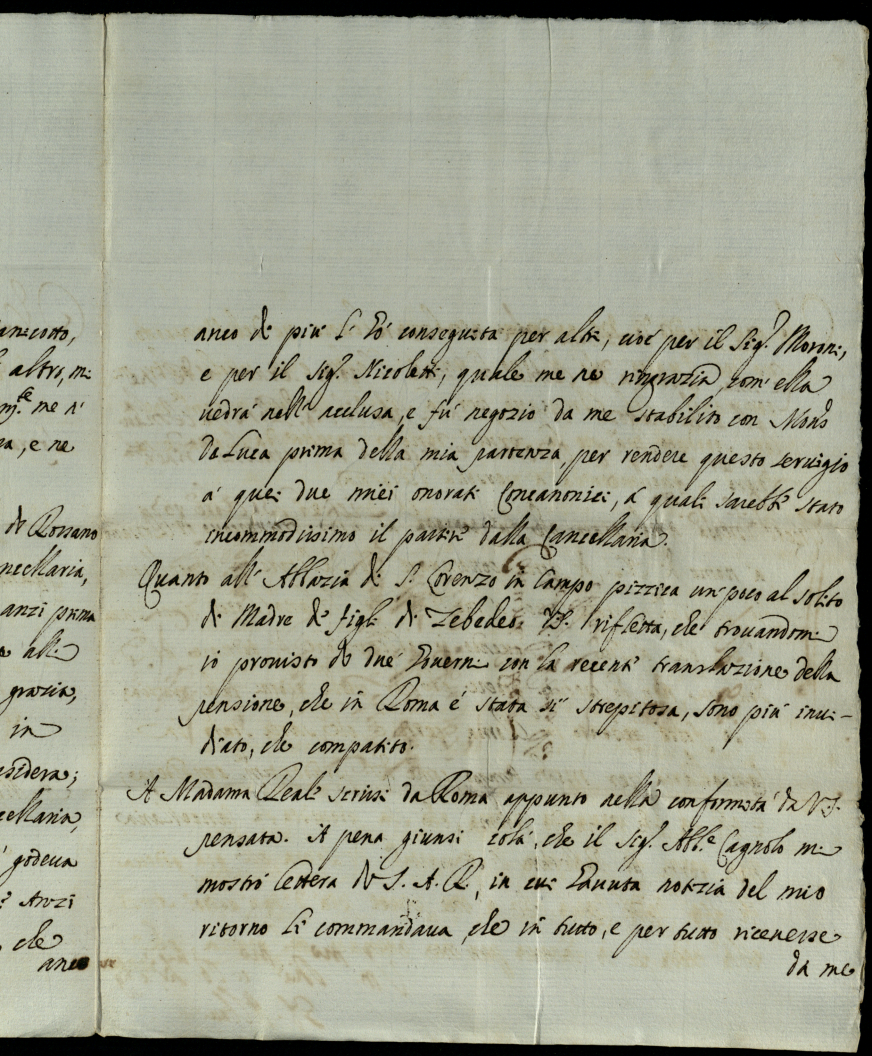 anecotto,
altro, mi
m.te me n'
na, e ne
di Rossano
ncellaria,
anzi prima
alli
grazia,
in
esidera;
cellaria,
godeua
Anzi
che
anco
anco di più l'hò conseguita per altri, cioè per il Sig.r Moroni,
e per il Sig.r Nicoletti, quale me ne ringrazia, com' ella
uedrà nell' acclusa, e fù negozio da me stabilito con Mons.r
de Luca prima della mia partenza, per rendere questo seruigio
à quei due miei onorati Concanonici, à quali sarebbe stato
incommodissimo il partire dalla Cancellaria.
Quanto all' Abbazia di S. Lorenzo in Campo pizzica un' poco al solito
di Madre de' figli di Zebedeo. V.S. rifletta, che trouandomi
io prouisto de due Gouerni con la recente translazione della
pensione, che in Roma è stata sì strepitosa, sono più inui-
diato, che compatito.
A Madama Reale scrissi da Roma appunto nella conformità da V.S.
pensata. A pena giunsi colà, che il Sig.r Abb.e Cagnolo mi
mostrò lettera di S. A. R., in cui hauuta notizia del mio
ritorno li commandaua, che in tutto, e per tutto riceuesse
da me